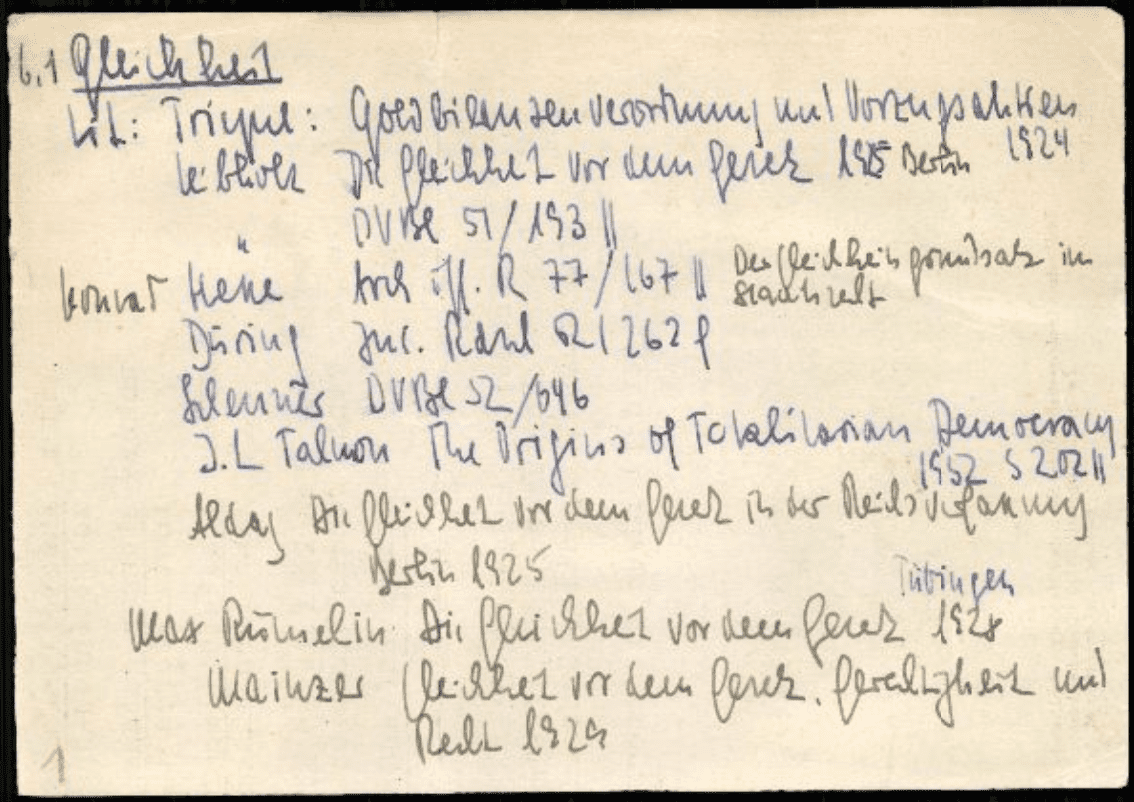 6.1 Gleichheit
Lit.: Triepel: Goldbilanzenverordnung und Vorzugsaktien 1924
Leibholz Die Gleichheit vor dem Gesetz 1925 Berlin
" DVBl 51/193 ff
Konrad Hesse Arch öff. R 77/167 ff Der Gleichheitsgrundsatz im
Staatsrecht
Düring Jur. 52/262 f
DVBl 52/646
J.L Talmon The Origins of Totalitarian Democracy
1952 S 202 ff
Aldag Die Gleichheit vor dem Gesetz in der Reichsverfassung
Berlin 1925
Tübingen
Max Rümelin Die Gleichheit vor dem Gesetz 1928
Mainzer Gleichheit vor dem Gesetz, Gerechtigkeit und
Recht 1929
1